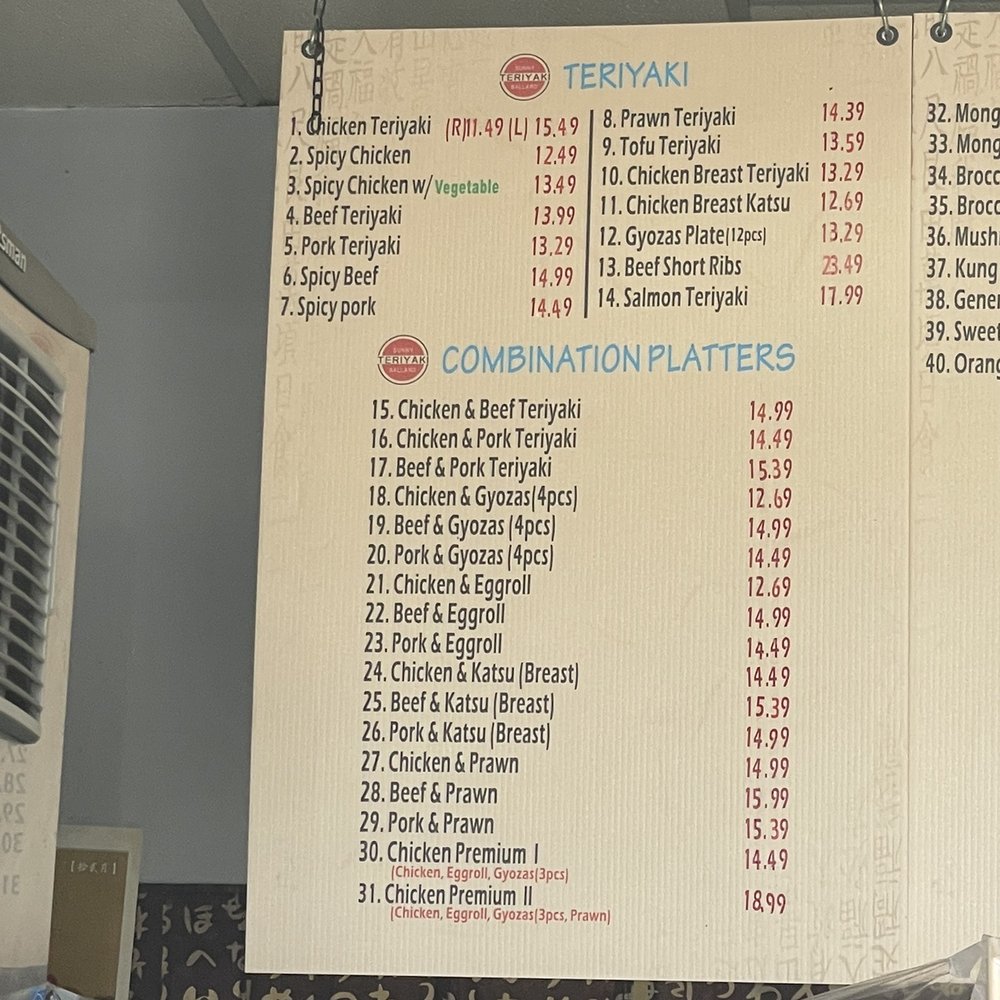 SUNNY
TERIYAK
BALLARD
TERIYAKI
1. Chicken Teriyaki (R)11.49 (L) 15.49
2. Spicy Chicken 12.49
3. Spicy Chicken w/ Vegetable 13.49
4. Beef Teriyaki 13.99
5. Pork Teriyaki 13,29
6. Spicy Beef 14.99
7. Spicy pork 14.49
8. Prawn Teriyaki 14.39
9. Tofu Teriyaki 13.59
10. Chicken Breast Teriyaki 13.29
11. Chicken Breast Katsu 12.69
12. Gyozas Plate(12pcs) 13,29
13. Beef Short Ribs 23.49
14. Salmon Teriyaki 17.99
SUNNY
TERIYAK
BALLARD
COMBINATION PLATTERS
15. Chicken & Beef Teriyaki 14.99
16. Chicken & Pork Teriyaki 14.49
17. Beef & Pork Teriyaki 15.39
18. Chicken & Gyozas(4pcs) 12.69
19. Beef & Gyozas (4pcs) 14.99
20. Pork & Gyozas (4pcs) 14.49
21. Chicken & Eggroll 12.69
22. Beef & Eggroll 14.99
23. Pork & Eggroll 14.49
24. Chicken & Katsu (Breast) 14.49
25. Beef & Katsu (Breast) 15.39
26. Pork & Katsu (Breast) 14.99
27. Chicken & Prawn 14.99
28. Beef & Prawn 15.99
29. Pork & Prawn 15.39
30. Chicken Premium I 14.49
(Chicken, Eggroll, Gyozas(3pcs)
31. Chicken Premium II 18,99
(Chicken, Eggroll, Gyozas(3pcs, Prawn)
32. Mong
33. Mong
34. Brocc
35. Brocc
36. Mushi
37. Kung
38. Gener
39. Sweet
40. Orang